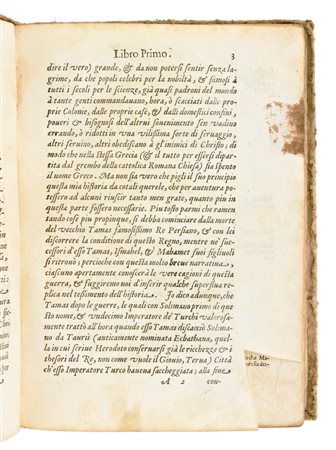 Libro Primo. 3
dire il vero) grande, & da non potersi sentir senza la-
grime, da che popoli celebri per la nobiltà, & famosi à
tutti i secoli per le scienze, già quasi padroni del mondo
à tante genti commandauano, hora, ò scacciati dalle pro-
prie Colonie, dalle proprie case, & dalli domestici confini,
poueri & bisognosi dell'altrui souuenimento sen vadino
errando, ò ridotti in una vilissima sorte di seruaggio,
altri seruino, altri obediscano à gl'inimici di Christo; di
modo che nella stessa Grecia (& il tutto per essersi dipar-
tita dal grembo della catholica Romana Chiesa) sia spento
il nome Greco. Ma non sia vero che pigli il suo principio
questa mia historia da cotali querele, che per auentura pote-
ssero ad alcuni riuscir tanto men grate, quanto più in
questa parte fossero necessarie. Più tosto parmi che ramen-
tando cose più propinque, si debba cominciare dalla morte
del vecchio Tamas famosissimo Re Persiano, & con lei
discorrere la conditione di questo Regno, mentre ne' suc-
cessori d'esso Tamas, Ismahel, & Mahamet suoi figliuoli
si ritrouò; percioche con questa molto breue narratiua,
ciascuno apertamente conoscerà le vere cagioni di questa
guerra, & noi fuggiremo d'inserir qualche superflua re-
plica nel testimento dell'historia. Io dico adunque, che
Tamas dopo le guerre, le quali con Solimano primo di que
sto nome, & undecimo Imperatore de' Turchi valorosa-
mente trattò all'hora quando esso Tamas discacciò Solima-
no da Taurii (anticamente nominata Ecbathana, quel-
la in cui scriue Herodoto conseruarsi già le ricchezze & i
thesori del Re, non come vuole il Giouio, Terua) Città
ch'esso Imperatore Turco haueua saccheggiata; alla fine
A 2 con-